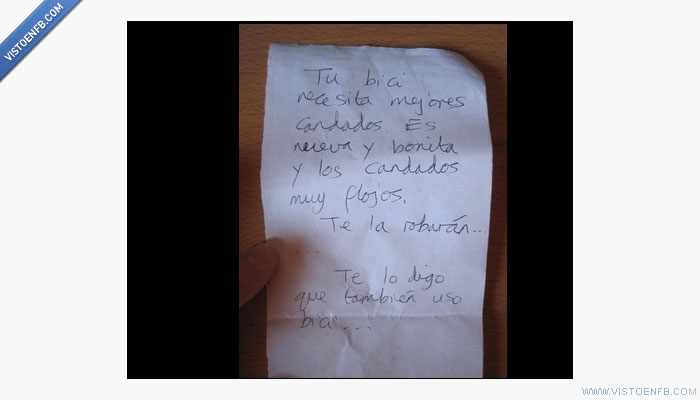 VISTOENFB.COM
Tu bici
necesita mejores
candados. Es
nueva y bonita
y los candados
muy flojos.
Te la robarán...
....
Te lo digo
que también uso
bici....
WWW.VISTOENFB.COM